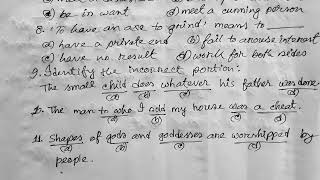 (a) be in want (d) meet a cunning person
8. 'To have an axe to grind' means to
(a) have a private end (b) fail to arouse interest
(c) have no result (d) work for both sides
9. Identify the incorrect portion:
The small child does whatever his father was done.
(a) (b) (c) (d)
10. The man to who I sold my house was a cheat.
(a) (b) (c) (d)
11. Shapes of gods and goddesses are worshipped by
(a) (b) (c) (d)
people.